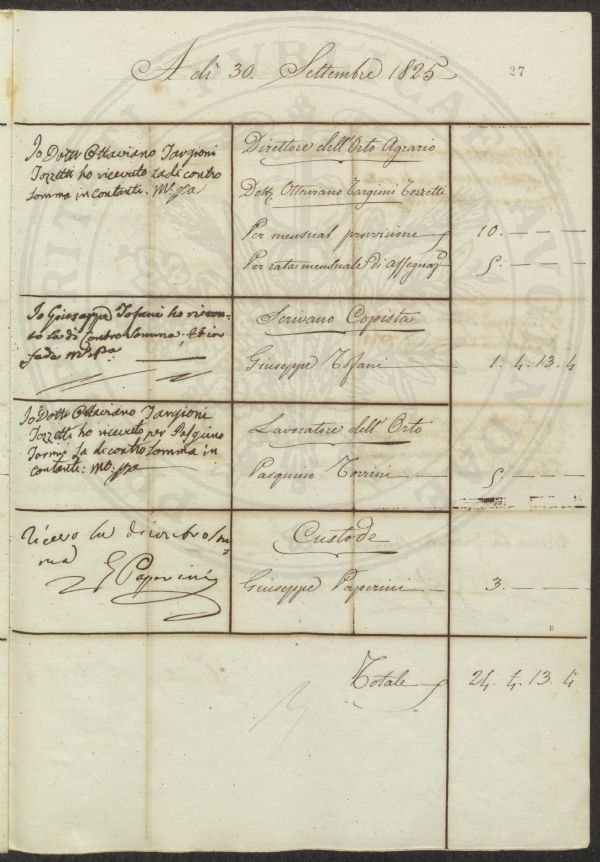 A dì 30. Settembre 1825
27
Io Dott. Ottaviano Targioni
Tozzetti ho ricevuto la di contro
somma in contanti. Mo. ppa
Direttore dell'Orto Agrario
Dott. Ottaviano Targioni Tozzetti
Per mensual provvisione 10. — —
Per rata mensuale di assegnaz. 5. — —
Io Giuseppe Tofani ho ricevu-
to la di contro somma, et in
fede mo. ppa.
Scrivano Copista
Giuseppe Tofani 1. 4. 13. 4
Io Dott. Ottaviano Targioni
Tozzetti ho ricevuto per Pasquino
Torrini la di contro somma in
contanti. mo. ppa
Lavoratore dell'Orto
Pasquino Torrini 5. — —
Ricevo la di contro som-
ma
G Paperini
Custode
Giuseppe Paperini 3. — —
Totale 24. 4. 13. 4